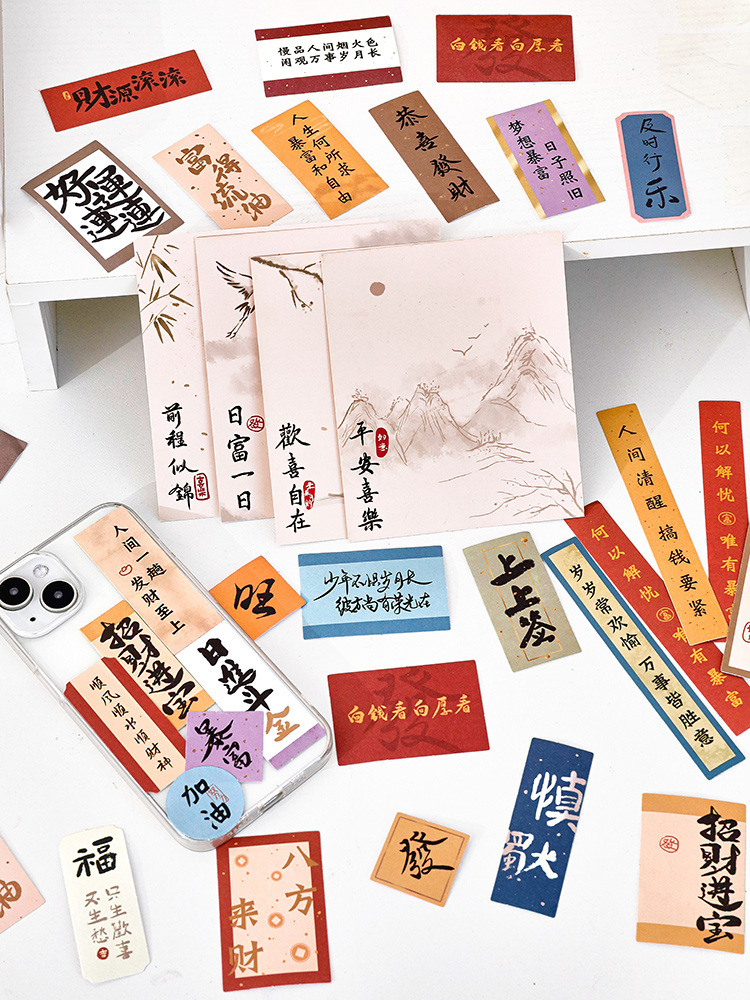 財源滚滚
慢品人间烟火色
闲观万事岁月长
向钱看向厚看
發
好運連連
富得流油
人生何所求
暴富和自由
恭喜發財
日子照旧
梦想暴富
及时行乐
前程似錦
日富一日
歡喜自在
平安喜樂
人间清醒 搞钱要紧
何以解忧 富 唯有暴富
何以解忧 富 唯有暴富
岁岁常欢愉 万事皆胜意
人间一趟
发财至上
招財进宝
日進斗金
顺风顺水顺财神
暴富
加油
旺
少年不惧岁月长
彼方尚有荣光在
上上签
向钱看向厚看
發
福
只生歡喜
不生愁
八方来财
發
慎獨
招財进宝
油